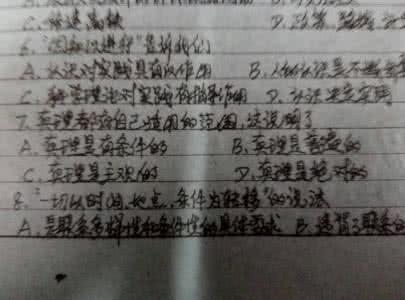 C. 促进 高校 D. 政策
6. "因知识进行" 告诉我们
A. 认识对实践具有反作用 B. 人的认识是不断
C. 科学理论对实践有指导作用 D. 认识决定实践
7. 真理都有自己适用的范围,这说明了
A. 真理是有条件的 B. 真理是普遍的
C. 真理是主观的 D. 真理是绝对的
8. "一切以时间、地点、条件为转移"的说法
A. 是联系多样性和条件性的具体要求 B. 违背了联系的